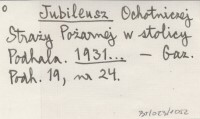 Jubileusz Ochotniczej
Straży Pożarnej w stolicy
Podhala. 1931... – Gaz.
Podh. 19, nr 24.